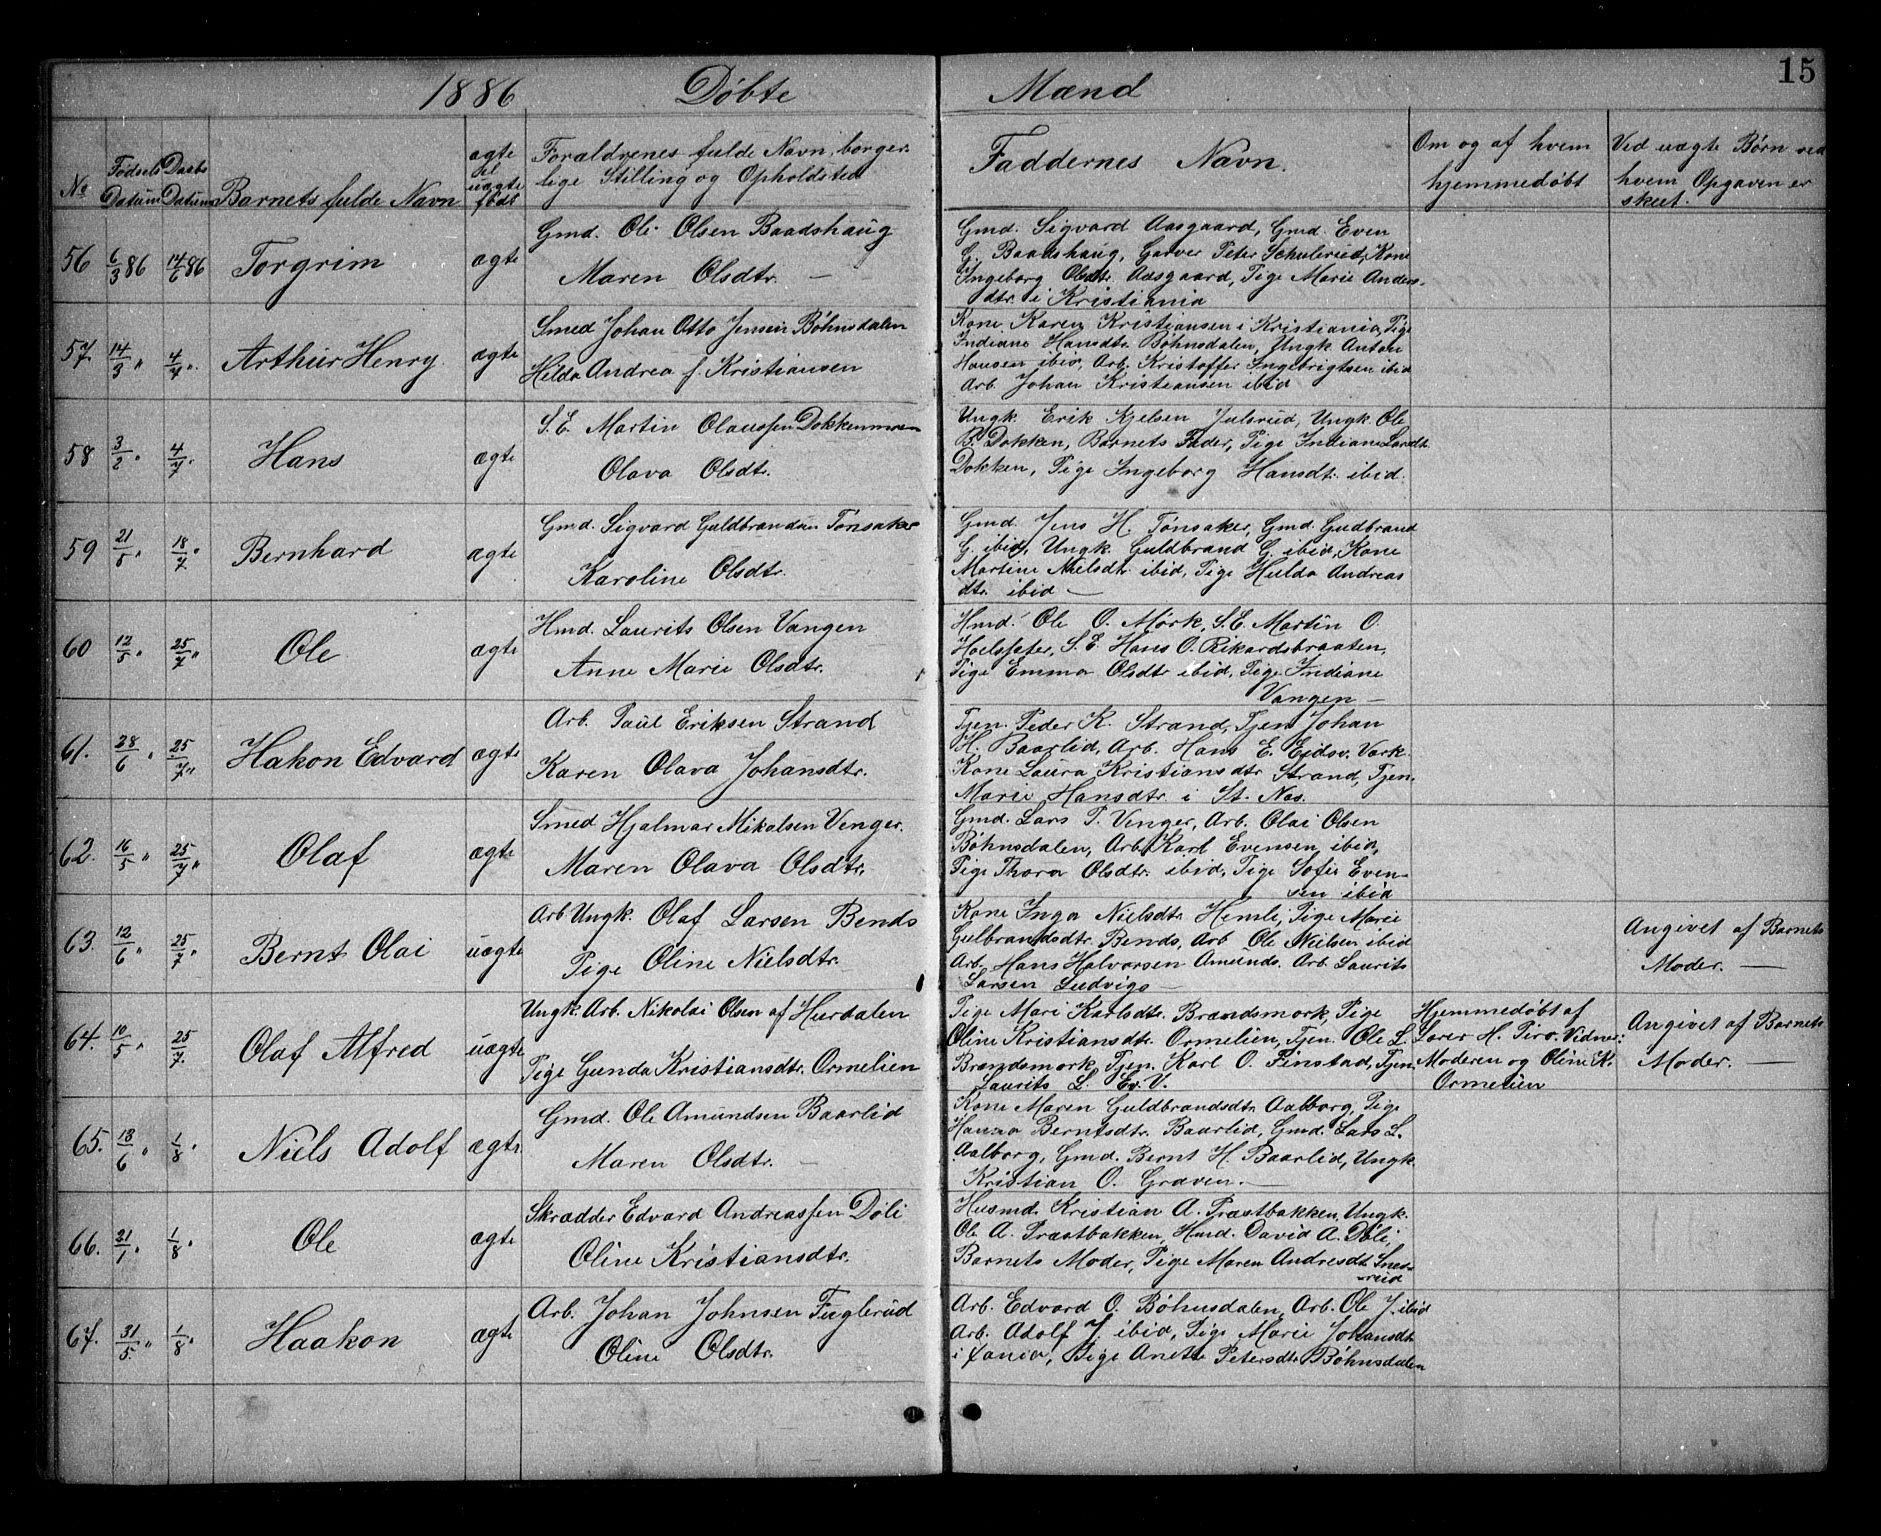 1886 Döbte Mænd 15
No
Fødsels Datum
Daabs Datum
Barnets fulde Navn
ægte el uægte født
Forældrenes fulde Navn, borger-
lige Stilling og Opholdsted
Faddernes Navn.
Om og af hvem
hjemmedøbt
Ved uægte Børn ved
hvem Opgaven er
skeet.
56 6/3 86 14/6 86 Torgrim ægte
Gmd. Ole Olsen Baadshaug
Maren Olsdtr. —
Gmd. Sigvard Aasgaard, Gmd. Even
G. Baadshaug, Garver Peter Schulerud, Kone
Ingeborg Olsdtr. Aasgaard, Pige Marie Anders-
dtr. i Kristiania
57. 14/3 " 4/7 ". Arthur Henry ægte
Smed Johan Otto Jensen Bøhnsdalen
Hilda Andrea f. Kristiansen
Kone Karen Kristiansen i Kristiania, Pige
Indiane Hansdtr. Bøhnsdalen, Ungk. Anton
Hansen ibid, Arb. Kristoffer Ingebrigtsen ibid
Arb. Johan Kristiansen ibid
58 3/2 " 4/7 " Hans ægte
S.E. Martin Olaussen Dokkenmoen
Olava Olsdtr.
Ungk. Erik Kjelsen Julsrud, Ungk. Ole
P. Dokken, Barnets Fader, Pige Indiane Larsdt.
Dokken, Pige Ingeborg Hansdt. ibid.
59 21/5 " 18/7 " Bernhard ægte
Gmd. Sigvard Guldbrandsen Tønsaker
Karoline Olsdtr.
Gmd. Jens H. Tønsaker, Gmd. Gudbrand
G. ibid, Ungk. Guldbrand G. ibid, Kone
Martine Nielsdtr. ibid, Pige Hulda Andreas
dtr. ibid —
60 12/5 " 25/7 " Ole ægte
Hmd. Laurits Olsen Vangen
Anne Marie Olsdtr.
Hmd. Ole O. Mørk, S.E. Martin O.
Hans O. Rikardsbraaten,
Pige Emma Olsdtr ibid, Pige Indiane
Vangen —
61. 28/6 " 25/7 " Hakon Edvard ægte
Arb. Paul Eriksen Strand
Karen Olava Johansdtr.
Tjen. Peder K. Strand, Tjen. Johan
H. Baarlid, Arb. Hans E. Eidsv. Værk.
Kone Laura Kristiansdtr Strand, Tjen.
Marie Hansdtr. i St. Næs.
62. 16/5 " 25/7 " Olaf ægte
Smed Hjalmar Mikalsen Venger.
Maren Olava Olsdtr.
Gmd. Lars P. Venger, Arb. Olai Olsen
Bøhnsdalen, Arb. Karl Evensen ibid,
Pige Thora Olsdtr. ibid, Pige Sofie Even-
sen ibid
63. 12/6 " 25/7 " Bernt Olai uægte
Arb. Ungk. Olaf Larsen Bends
Pige Oline Nielsdtr.
Kone Inga Nielsdtr. Hemli, Pige Marie
Gulbrandsdtr. Bends, Arb. Ole Nielsen ibid
Arb. Hans Halvorsen Amunds. Arb. Laurits
Larsen Ludvigs —
Angivet af Barnets
Moder. —
64. 10/5 " 25/7. Olaf Alfred uægte
Ungk. Arb. Nikolai Olsen af Hurdalen
Pige Gunda Kristiansdtr. Ormelien
Pige Mari Karlsdtr. Brændsmork, Pige
Oline Kristiansdtr. Ormelien, Tjen. Ole L.
Brændsmork, Tjen. Karl O. Finstad, Tjen.
Laurits L. Ev. V.
Hjemmedøbt af
Lærer H. Piro. Vidne:
Moderen og Oline K.
Ormelien
Angivet af Barnets
Moder. —
65. 18/6 " 1/8 " Niels Adolf ægte
Gmd. Ole Amundsen Baarlid
Maren Olsdtr. —
Kone Maren Guldbrandsdtr Aalborg, Pige
Hanna Berntsdtr. Baarlid, Gmd. Lars L.
Aalborg, Gmd. Bernt H. Baarlid, Ungk.
Kristian O. Graven. —
66. 21/1 " 1/8 " Ole ægte
Skrædder Edvard Andreassen Døli
Oline Kristiansdtr.
Husmd. Kristian A. Præstbakken, Ungk.
Ole A. Præstbakken, Hmd. David A. Døli,
Barnets Moder, Pige Maren Andresdt.
67. 31/5. " 1/8 " Haakon ægte
Arb. Johan Johnsen Fuglerud
Oline Olsdtr.
Arb. Edvard O. Bøhnsdalen, Arb. Ole J. ibid
Arb. Adolf J. ibid, Pige Marie Johansdt.
i Xania, Pige Anette Petersdtr. Bøhnsdalen